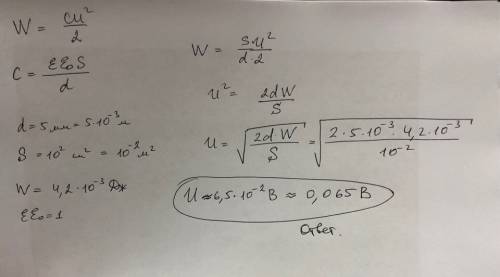 W = CU²/2
C = εε₀S/d
d = 5 мм = 5·10⁻³ м
S = 10² см² = 10⁻² м²
W = 4,2·10⁻³ Дж
εε₀ = 1
W = S·U²/d·2
U² = 2dW/S
U = √(2d·W/S) = √(2·5·10⁻³·4,2·10⁻³/10⁻²)
U ≈ 6,5·10⁻² В ≈ 0,065 В
Ответ.